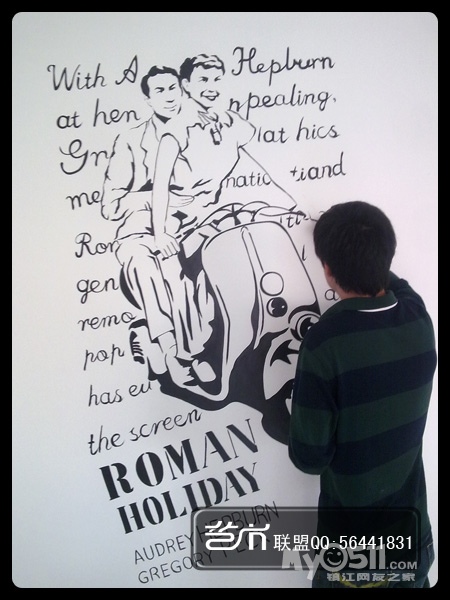 With A Hepburn
at hen ppealing,
Gr lat hics
me natio tiand
Ron
gen
remo
pop
has eu
the screen
ROMAN
HOLIDAY
AUDREY HEPBURN
GREGORY
联盟QQ:56441831
My0511.com
镇江网友之家